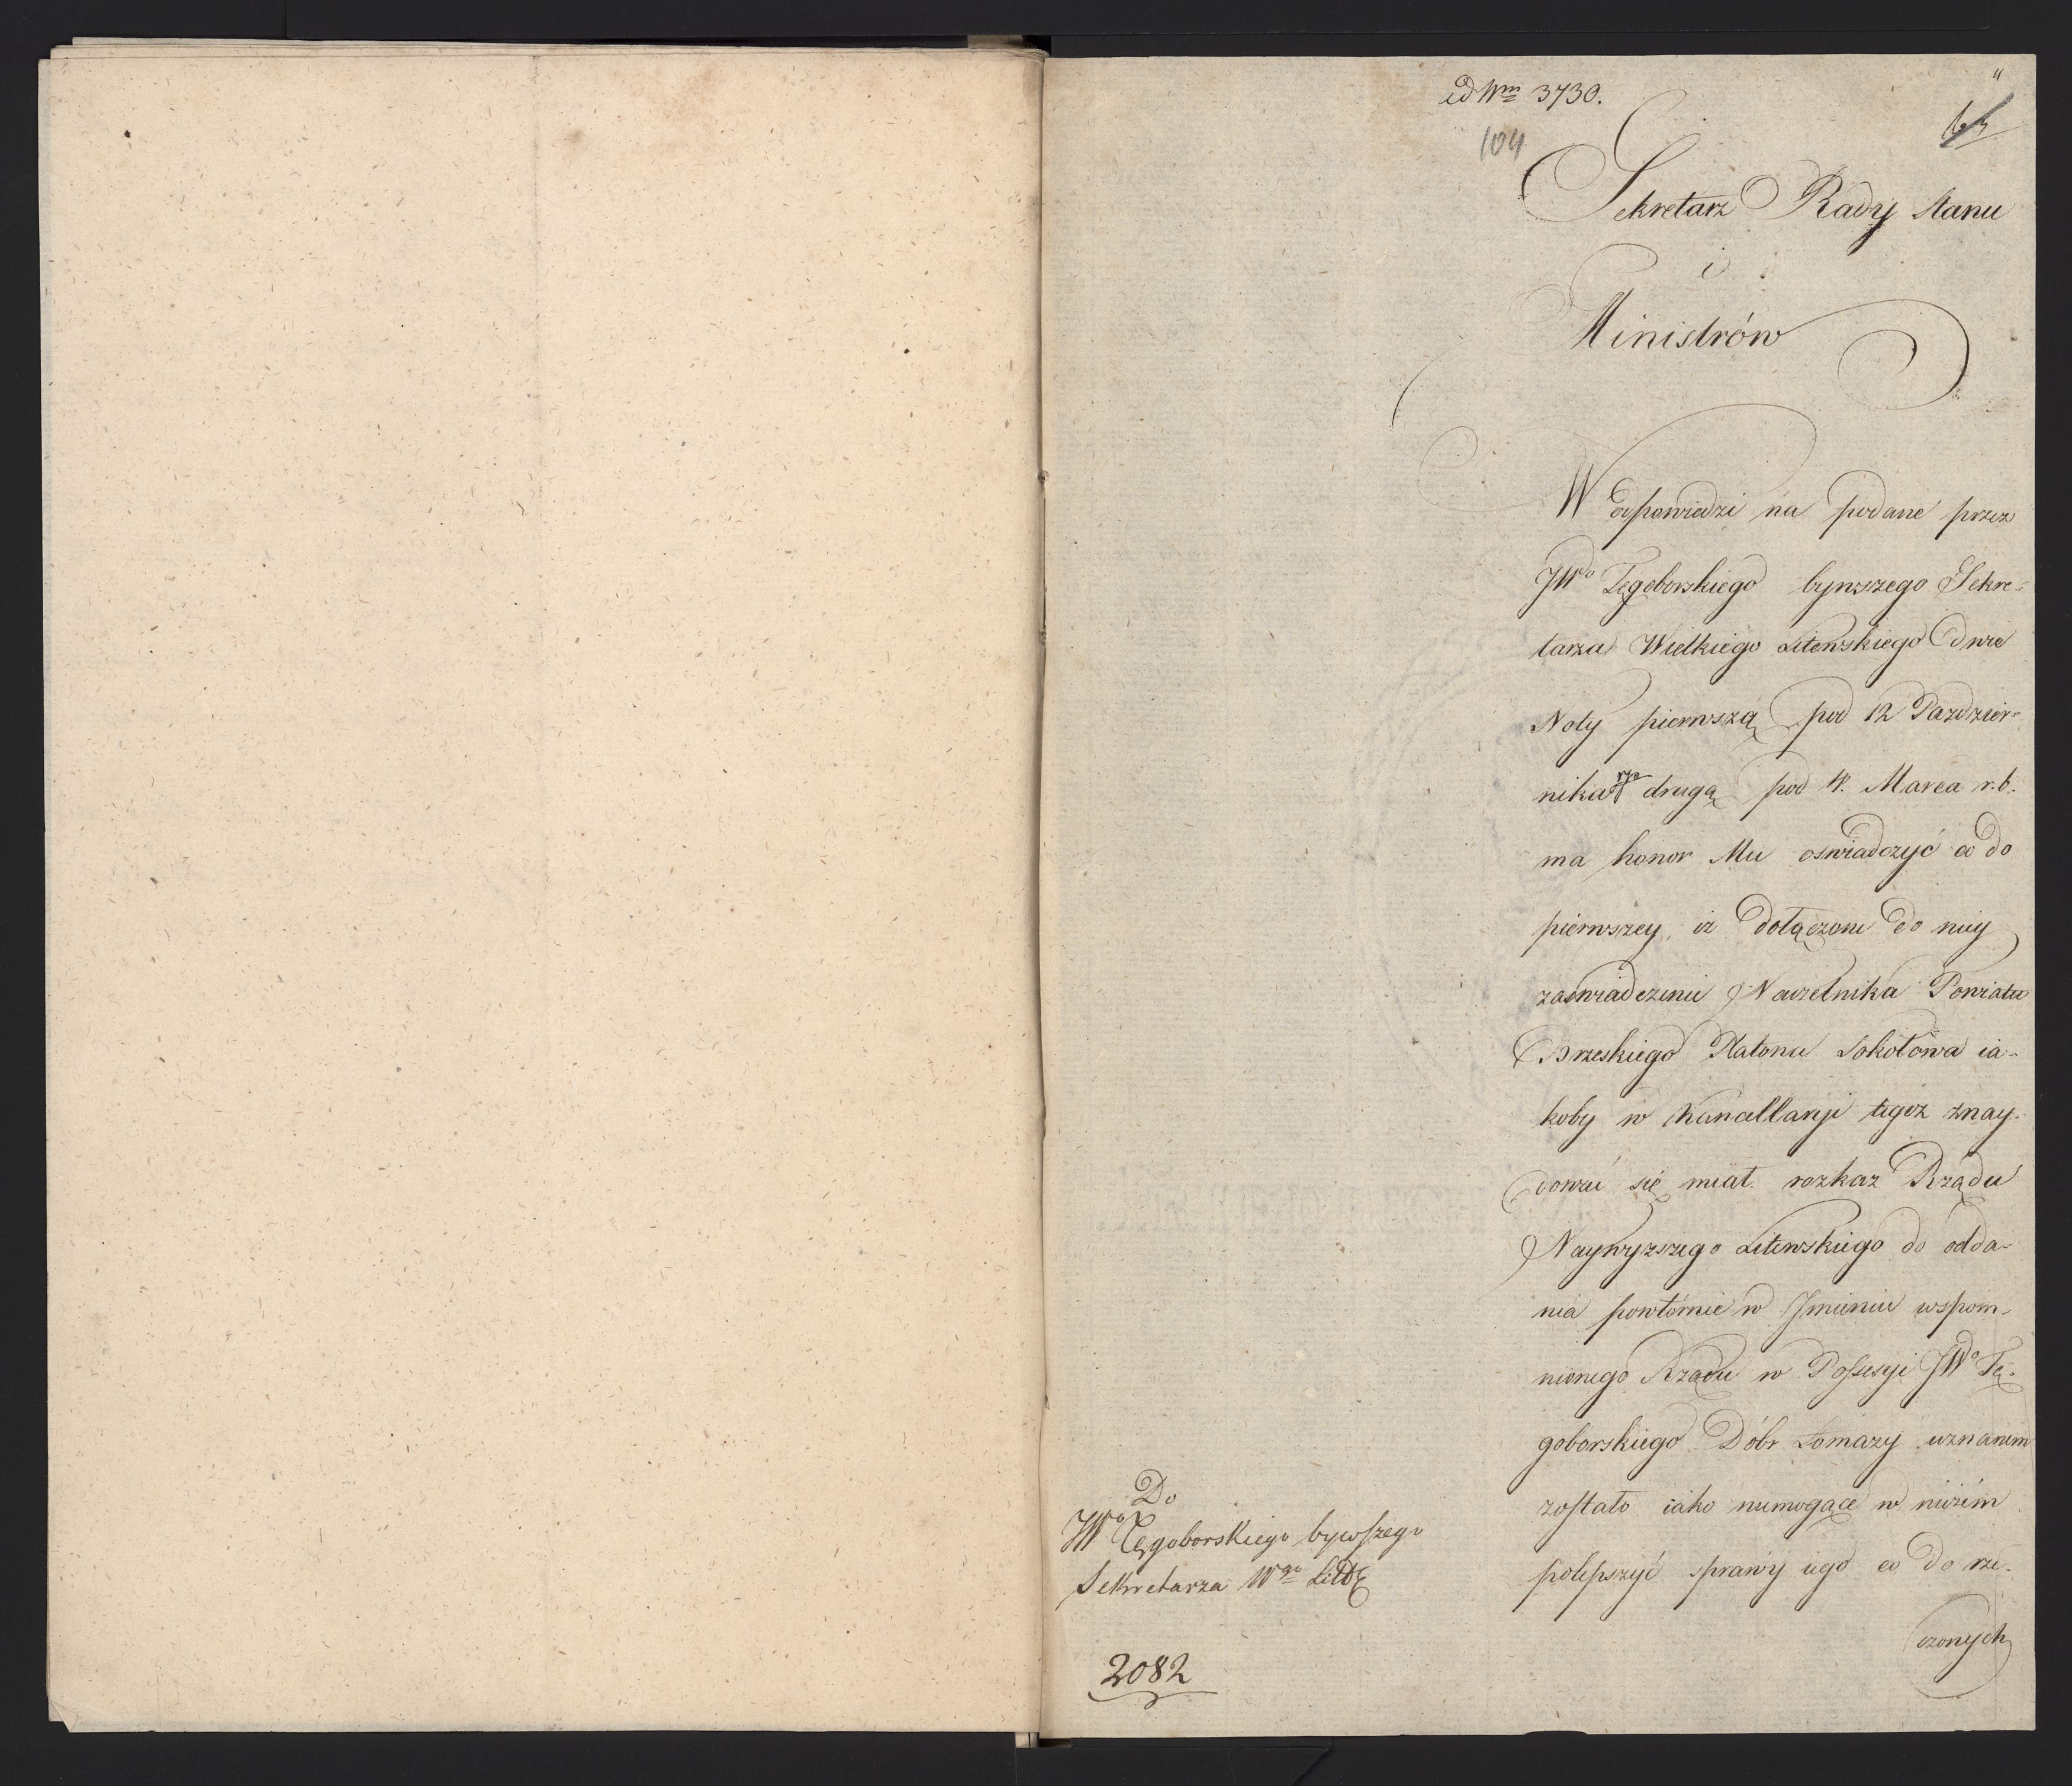 ad Nrm 3730.
104
Sekretarz Rady Stanu
i
Ministrów
W odpowiedzi na podane przez
JWo Tęgoborskiego bywszego Sekre-
tarza Wielkiego Litewskiego dwie
Noty pierwszą pod 12 Pazdzier-
nika drugą pod 4. Marca r. b.
ma honor Mu oswiadczyć co do
pierwszey, iz dołączone do niey
zaswiadczenie Naczelnika Powiatu
Brzeskiego Platona Sokołowa ia-
koby w Kancellaryi tegoz znay-
dować się miał rozkaz Rządu
Naywyzszego Litewskiego do odda-
nia powtórnie w Jmieniu wspom-
nionego Rządu w Possesyi JWo Tę-
goborskiego Dóbr Łomazy uznanem
zostało iako niemogące w niczém
polepszyć sprawy iego co do rze-
czonych
Do
JWo Tęgoborskiego bywszego
Sekretarza Wgo Litt
2082